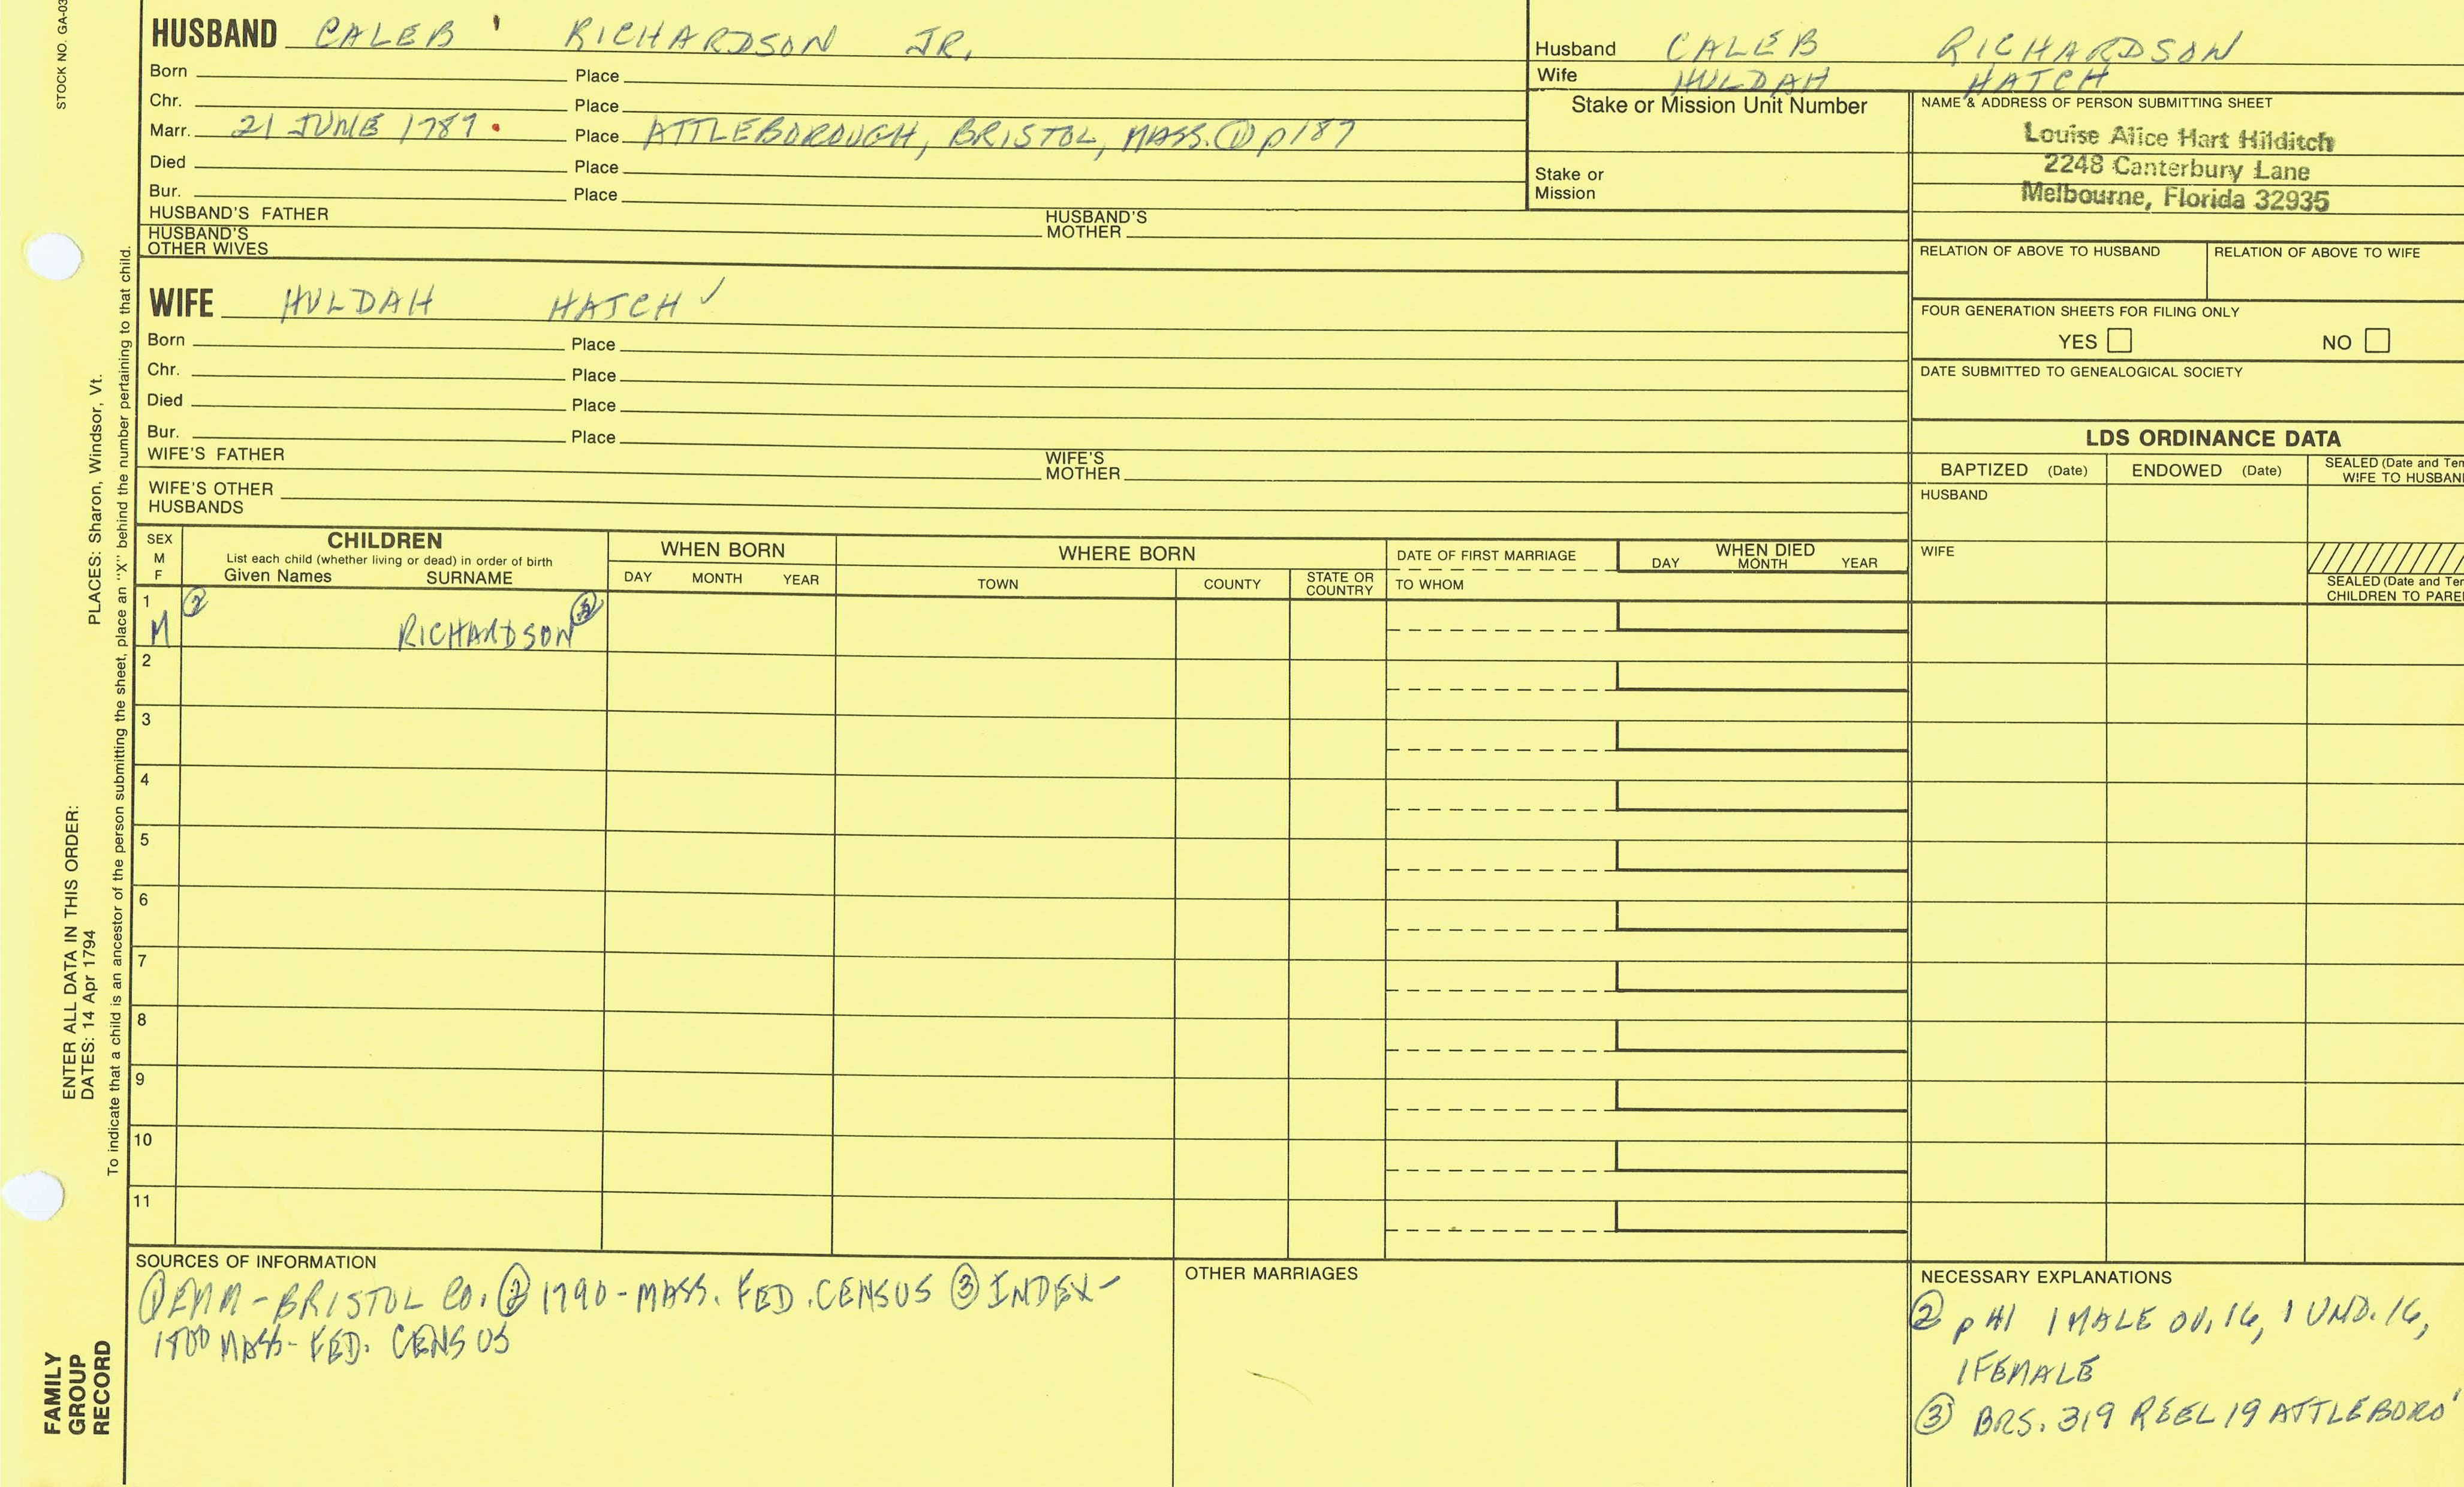 STOCK NO. GA-03
HUSBAND CALEB ' RICHARDSON JR.
Born Place
Chr. Place
Marr. 21 JUNE 1787. Place ATTLEBOROUGH, BRISTOL, MASS. ① p187
Died Place
Bur. Place
HUSBAND'S FATHER HUSBAND'S MOTHER
HUSBAND'S OTHER WIVES
Husband CALEB RICHARDSON
Wife HULDAH HATCH
Stake or Mission Unit Number
Stake or Mission
NAME & ADDRESS OF PERSON SUBMITTING SHEET
Louise Alice Hart Hilditch
2248 Canterbury Lane
Melbourne, Florida 32935
RELATION OF ABOVE TO HUSBAND RELATION OF ABOVE TO WIFE
FOUR GENERATION SHEETS FOR FILING ONLY
YES NO
DATE SUBMITTED TO GENEALOGICAL SOCIETY
WIFE HULDAH HATCH ✓
Born Place
Chr. Place
Died Place
Bur. Place
WIFE'S FATHER WIFE'S MOTHER
WIFE'S OTHER HUSBANDS
LDS ORDINANCE DATA
BAPTIZED (Date) ENDOWED (Date) SEALED (Date and Tem
WIFE TO HUSBAN
HUSBAND
WIFE
SEALED (Date and Tem
CHILDREN TO PARE
SEX
M
F
CHILDREN
List each child (whether living or dead) in order of birth
Given Names SURNAME
WHEN BORN
DAY MONTH YEAR
WHERE BORN
TOWN COUNTY STATE OR COUNTRY
DATE OF FIRST MARRIAGE
TO WHOM
WHEN DIED
DAY MONTH YEAR
1 M ② RICHARDSON
2
3
4
5
6
7
8
9
10
11
SOURCES OF INFORMATION
① EMM - BRISTOL CO. ② 1790 - MASS. FED. CENSUS ③ INDEX -
1800 MASS - FED. CENSUS
OTHER MARRIAGES
NECESSARY EXPLANATIONS
② p 41 1 MALE OV. 16, 1 UND. 16,
1 FEMALE
③ BRS. 319 REEL 19 ATTLEBORO'
PLACES: Sharon, Windsor, Vt.
ENTER ALL DATA IN THIS ORDER:
DATES: 14 Apr 1794
To indicate that a child is an ancestor of the person submitting the sheet, place an "X" behind the number pertaining to that child.
FAMILY
GROUP
RECORD